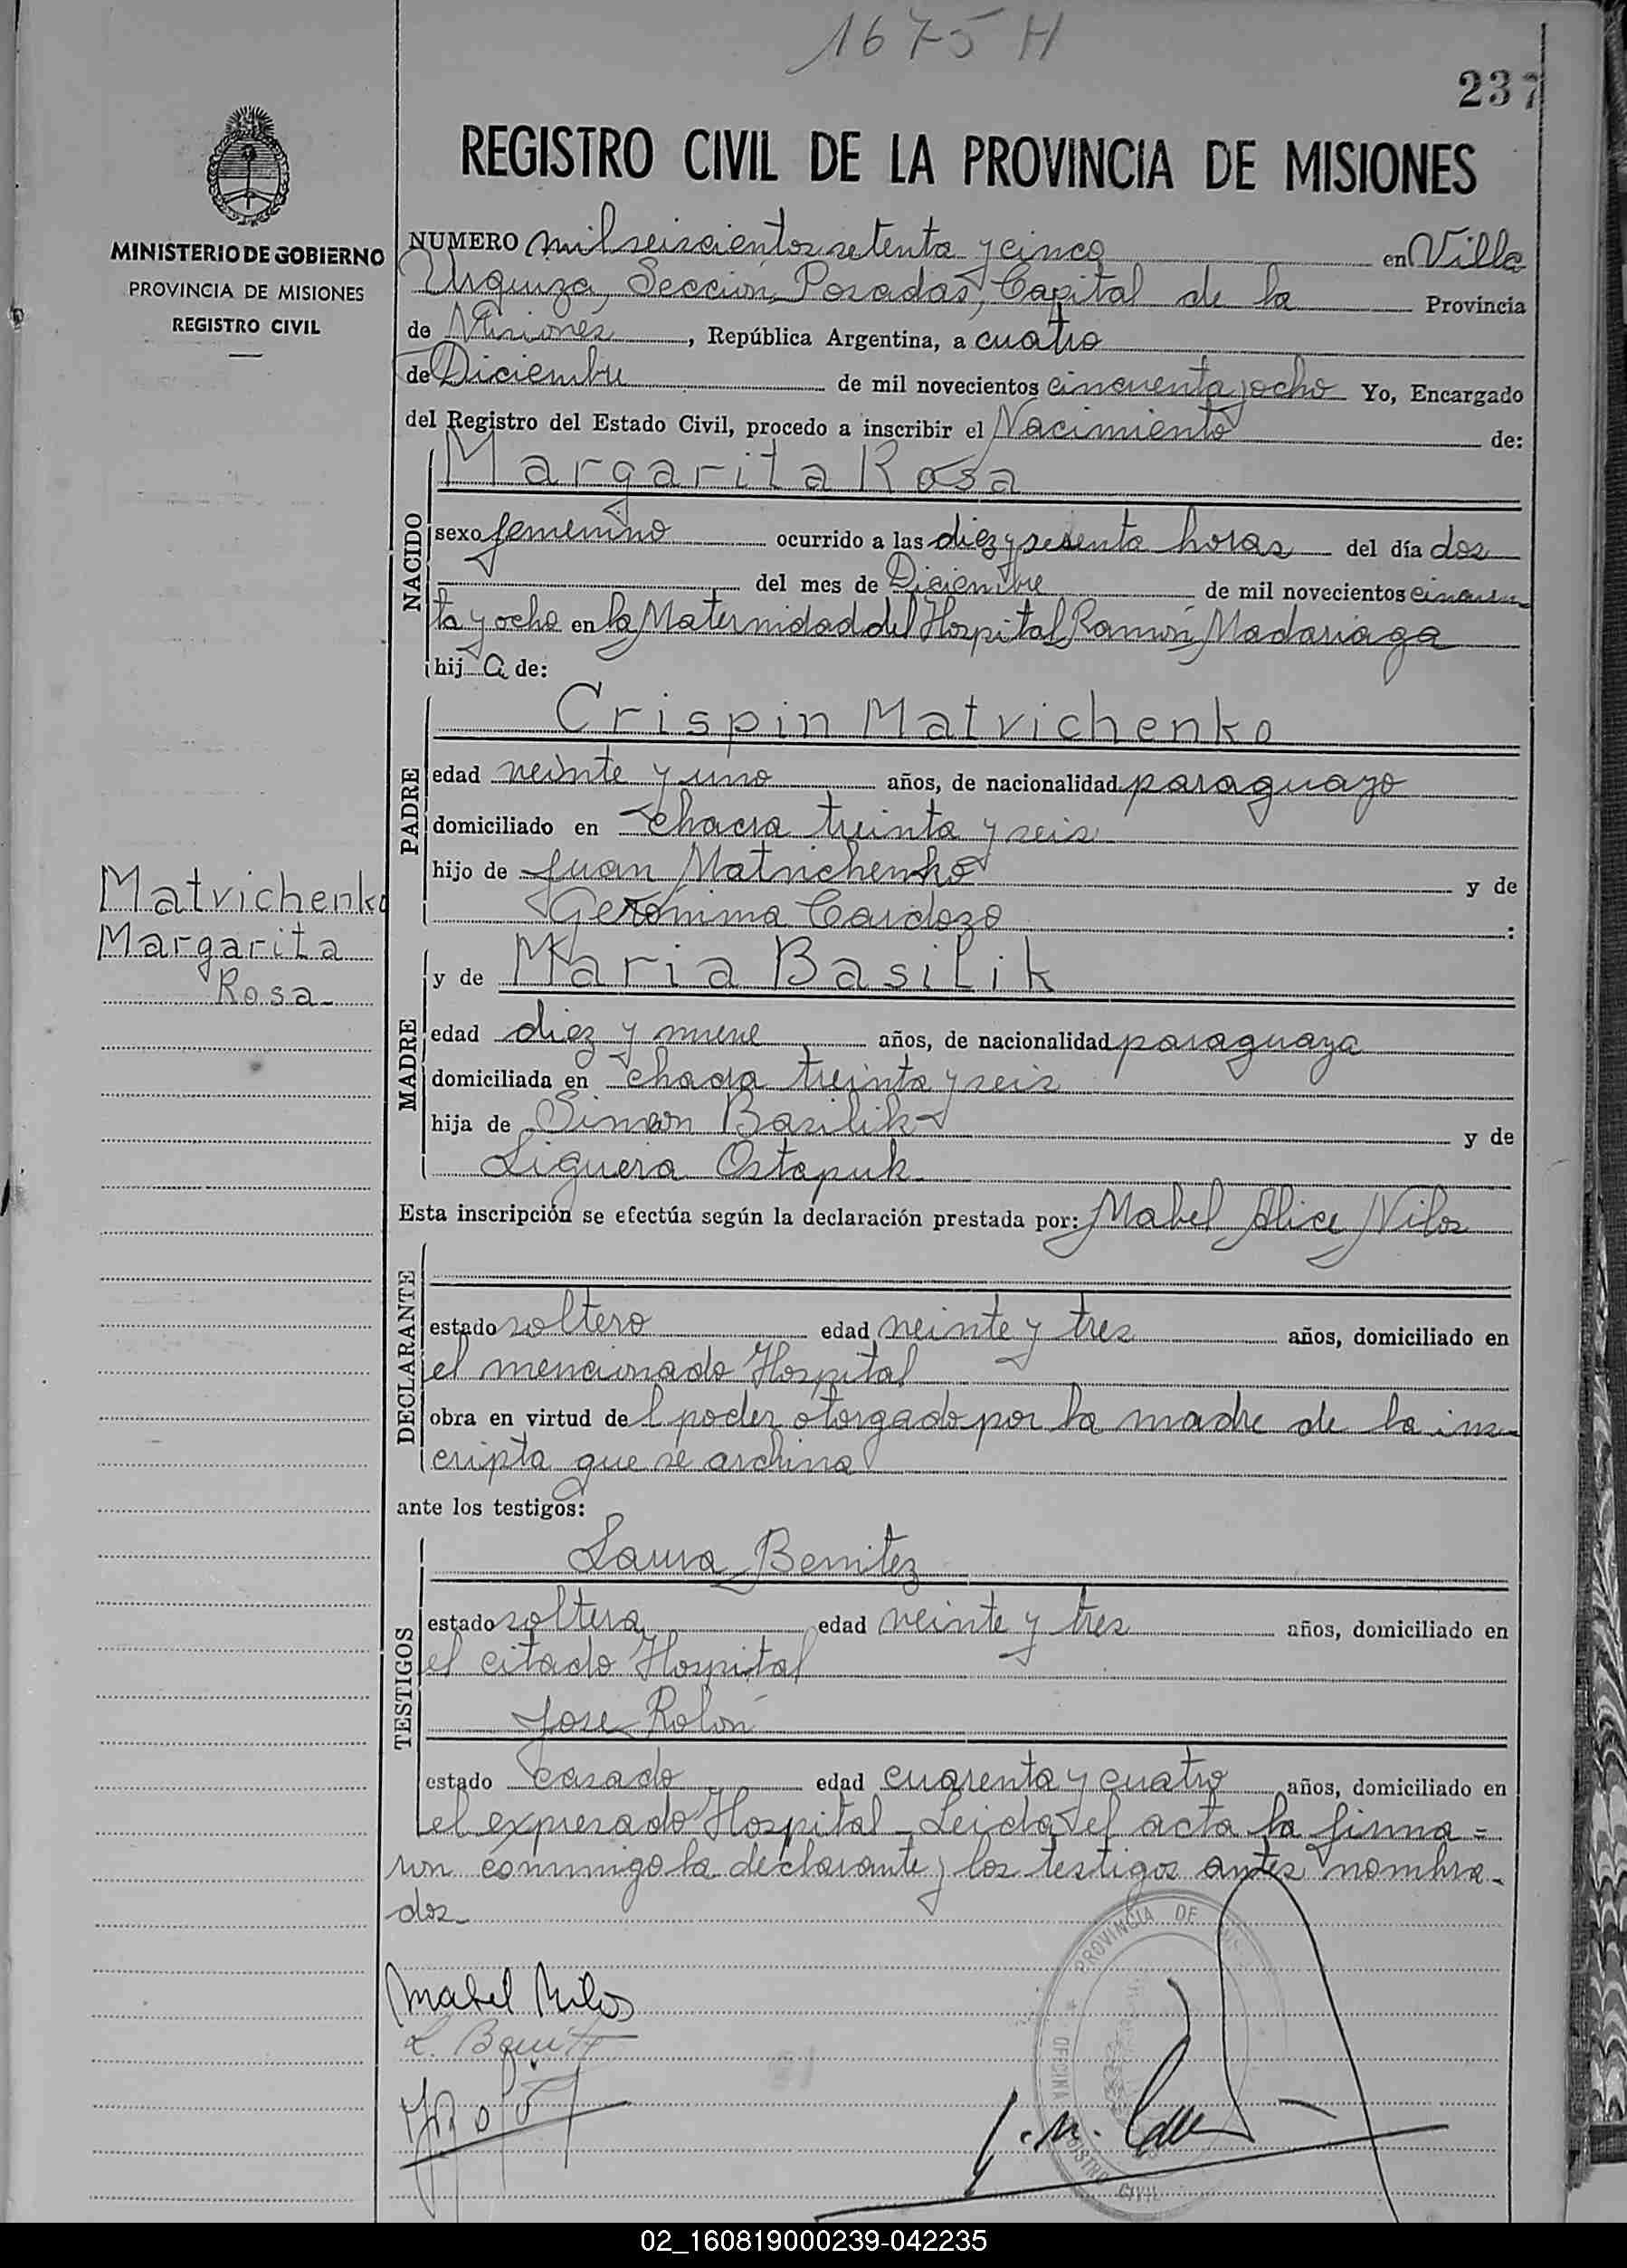 1675 H
237
REGISTRO CIVIL DE LA PROVINCIA DE MISIONES
MINISTERIO DE GOBIERNO
PROVINCIA DE MISIONES
REGISTRO CIVIL
NUMERO mil seiscientos setenta y cinco en Villa
Urquiza, Sección Posadas, Capital de la Provincia
de Misiones, República Argentina, a cuatro
de Diciembre de mil novecientos cincuenta y ocho Yo, Encargado
del Registro del Estado Civil, procedo a inscribir el Nacimiento de:
NACIDO
Margarita Rosa
sexo femenino ocurrido a las diez y sesenta horas del día dos
del mes de Diciembre de mil novecientos cincuen
ta y ocho en la Maternidad del Hospital Ramón Madariaga
hij a de:
PADRE
Crispin Matvichenko
edad veinte y uno años, de nacionalidad paraguayo
domiciliado en chacra treinta y seis
hijo de Juan Matvichenko y de
Gerónima Cardozo :
Matvichenko
Margarita
Rosa-
MADRE
y de Maria Basilik
edad diez y nueve años, de nacionalidad paraguaya
domiciliada en chacra treinta y seis
hija de Simon Basilik y de
Liguera Ostapuk
Esta inscripción se efectúa según la declaración prestada por: Mabel Alice Nilos
DECLARANTE
estado soltero edad veinte y tres años, domiciliado en
el mencionado Hospital
obra en virtud de l poder otorgado por la madre de la ins-
cripta que se archiva
ante los testigos:
TESTIGOS
Laura Benitez
estado soltera edad veinte y tres años, domiciliado en
el citado Hospital
Jose Rolón
estado casado edad cuarenta y cuatro años, domiciliado en
el expresado Hospital - Leida el acta la firma=
ron conmigo la declarante y los testigos antes nombra-
dos-
PROVINCIA DE
OFICINA
REGISTRO CIVIL
Mabel Nilos
L. Benitez
02_160819000239-042235